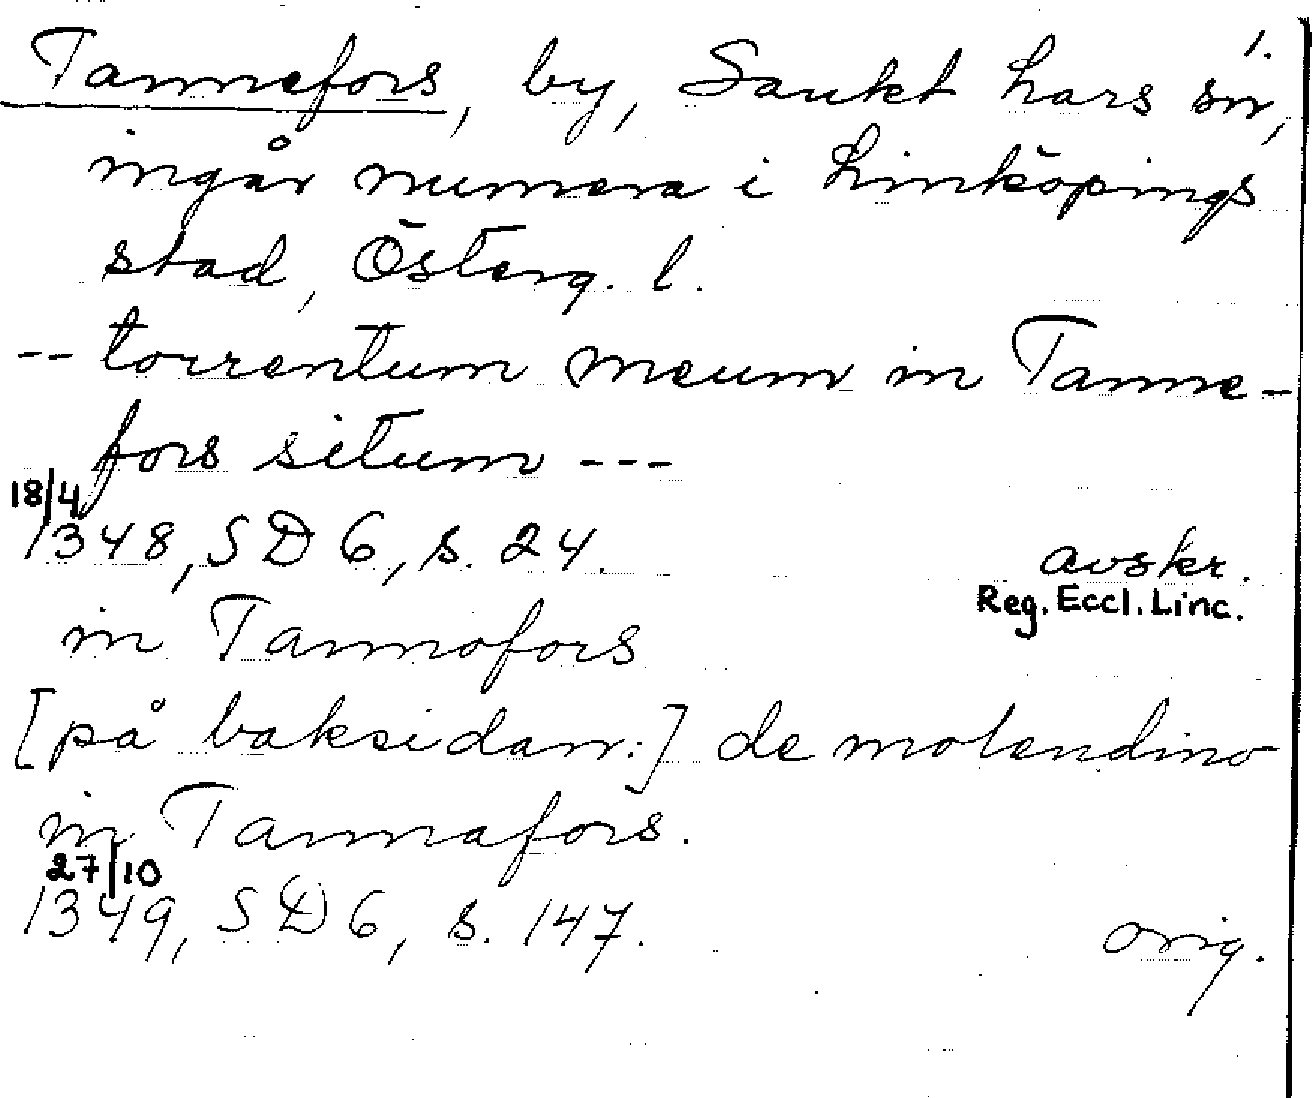 1.
Tannefors, by, Sankt Lars sn,
ingår numera i Linköpings
stad, Österg. l.
-- torrentum meum in Tanne-
fors situm ---
18/4
1348, SD 6, s. 24. avskr.
Reg. Eccl. Linc.
in Tannofors
[på baksidan:] de molendino
in Tannafors.
27/10
1349, SD 6, s. 147. orig.